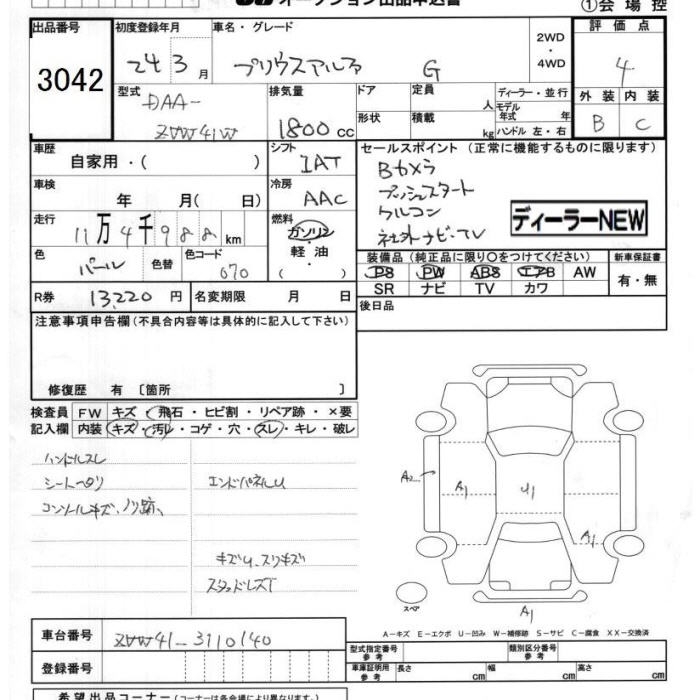 オークション出品申込書
①会場控
出品番号
3042
初度登録年月
24 3月
車名・グレード
プリウスアルファ G
2WD
・
4WD
評価点
4
外装 内装
B C
型式
DAA-
ZVW41W
排気量
1800 cc
ドア
形状
定員 人
積載 kg
ディーラー・並行
モデル年式 年
ハンドル 左・右
車歴
自家用・( )
シフト
IAT
セールスポイント (正常に機能するものに限ります)
Bカメラ
プッシュスタート
クルコン
社外ナビ・TV
ディーラーNEW
車検
年 月( 日)
冷房
AAC
走行
11万4千988km
燃料
ガソリン
・
軽油
( )
色
パール
色替
色コード
070
装備品 (純正品に限り○をつけてください)
PS PW ABS エアB AW
SR ナビ TV カワ
新車保証書
有・無
R券 13,220 円
名変期限 月 日
後日品
注意事項申告欄 (不具合内容等は具体的に記入して下さい)
修復歴 有 [箇所 ]
検査員 FW キズ・飛石・ヒビ割・リペア跡・×要
記入欄 内装 キズ・汚レ・コゲ・穴・スレ・キレ・破レ
ハンドルスレ
シートヘタリ
エンドパネルU
コンソールキズ、ノリ跡、
キズU、スリキズ
スタッドレスT
A2
A1
U1
A1
A1
スペア
A-キズ E-エクボ U-凹み W-補修跡 S-サビ C-腐食 XX-交換済
車台番号 ZVW41-3110140
登録番号
型式指定番号
参考
類別区分番号
参考
車庫証明用
参考
長さ cm
幅 cm
高さ cm
希望出品コーナー (コーナーは各会場により異なります。)